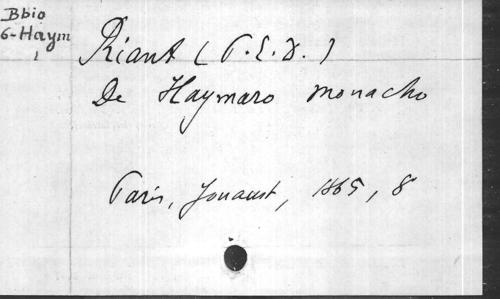 Bbio
6-Haym
1
Riant (P.E.D.)
De Haymaro monacho
Paris, Jouaust, 1865, 8°